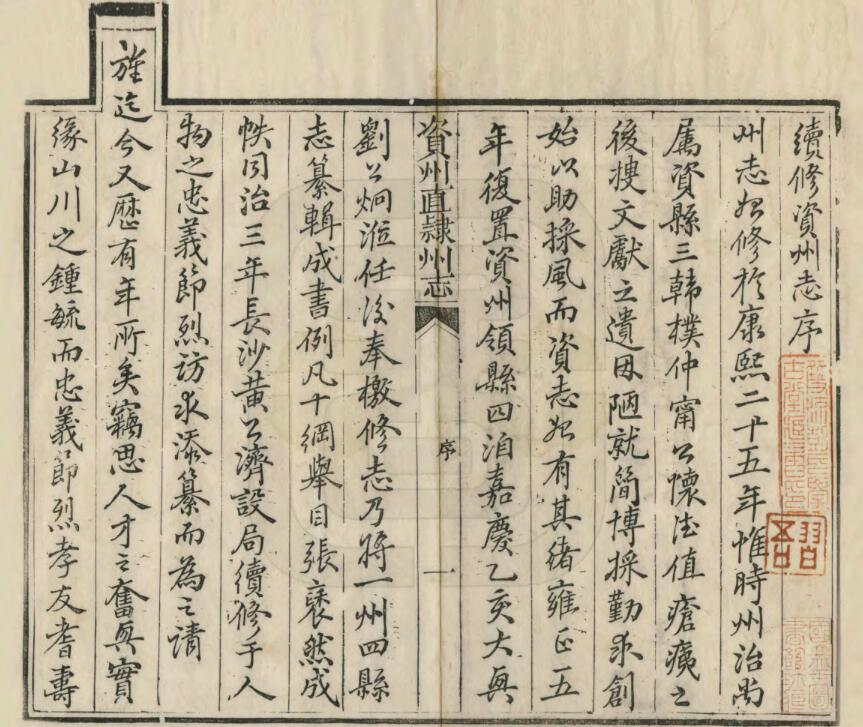 續修資州志序
州志始修於康熙二十五年惟時州治尚
屬資縣三韓樸仲甯公懷德值瘡痍之
後搜文獻之遺因陋就簡博採勤求創
始以助採風而資志始有其緒雍正五
年復置資州領縣四洎嘉慶乙亥大興
資州直隸州志
序
一
劉公炯涖任後奉檄修志乃將一州四縣
志纂輯成書例凡十綱舉目張裒然成
帙同治三年長沙黃公濟設局續修于人
物之忠義節烈訪求添纂而為之請
旌迄今又歷有年所矣竊思人才之奮興實
緣山川之鍾毓而忠義節烈孝友耆壽